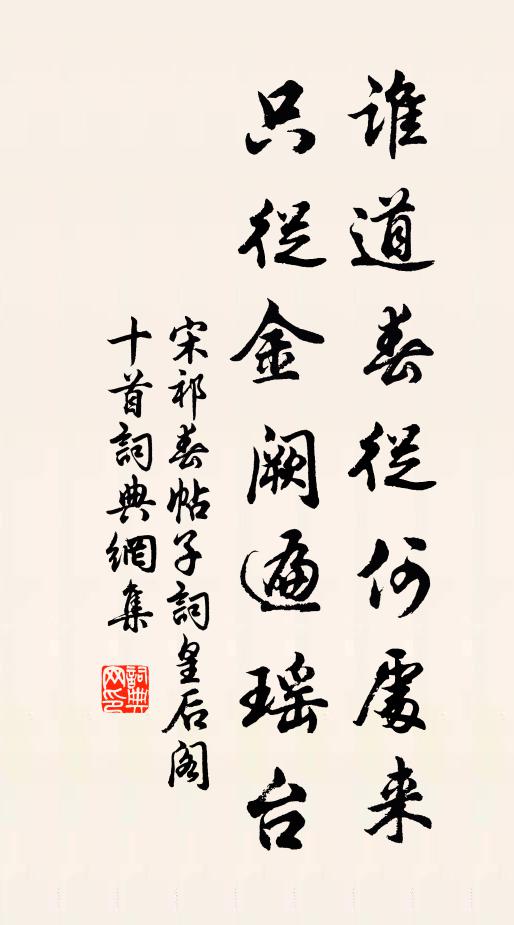 誰道春從何處来
只從金闕遍瑶台
宋祁春帖子詞皇后阁
十首詞典網集
詞典网印